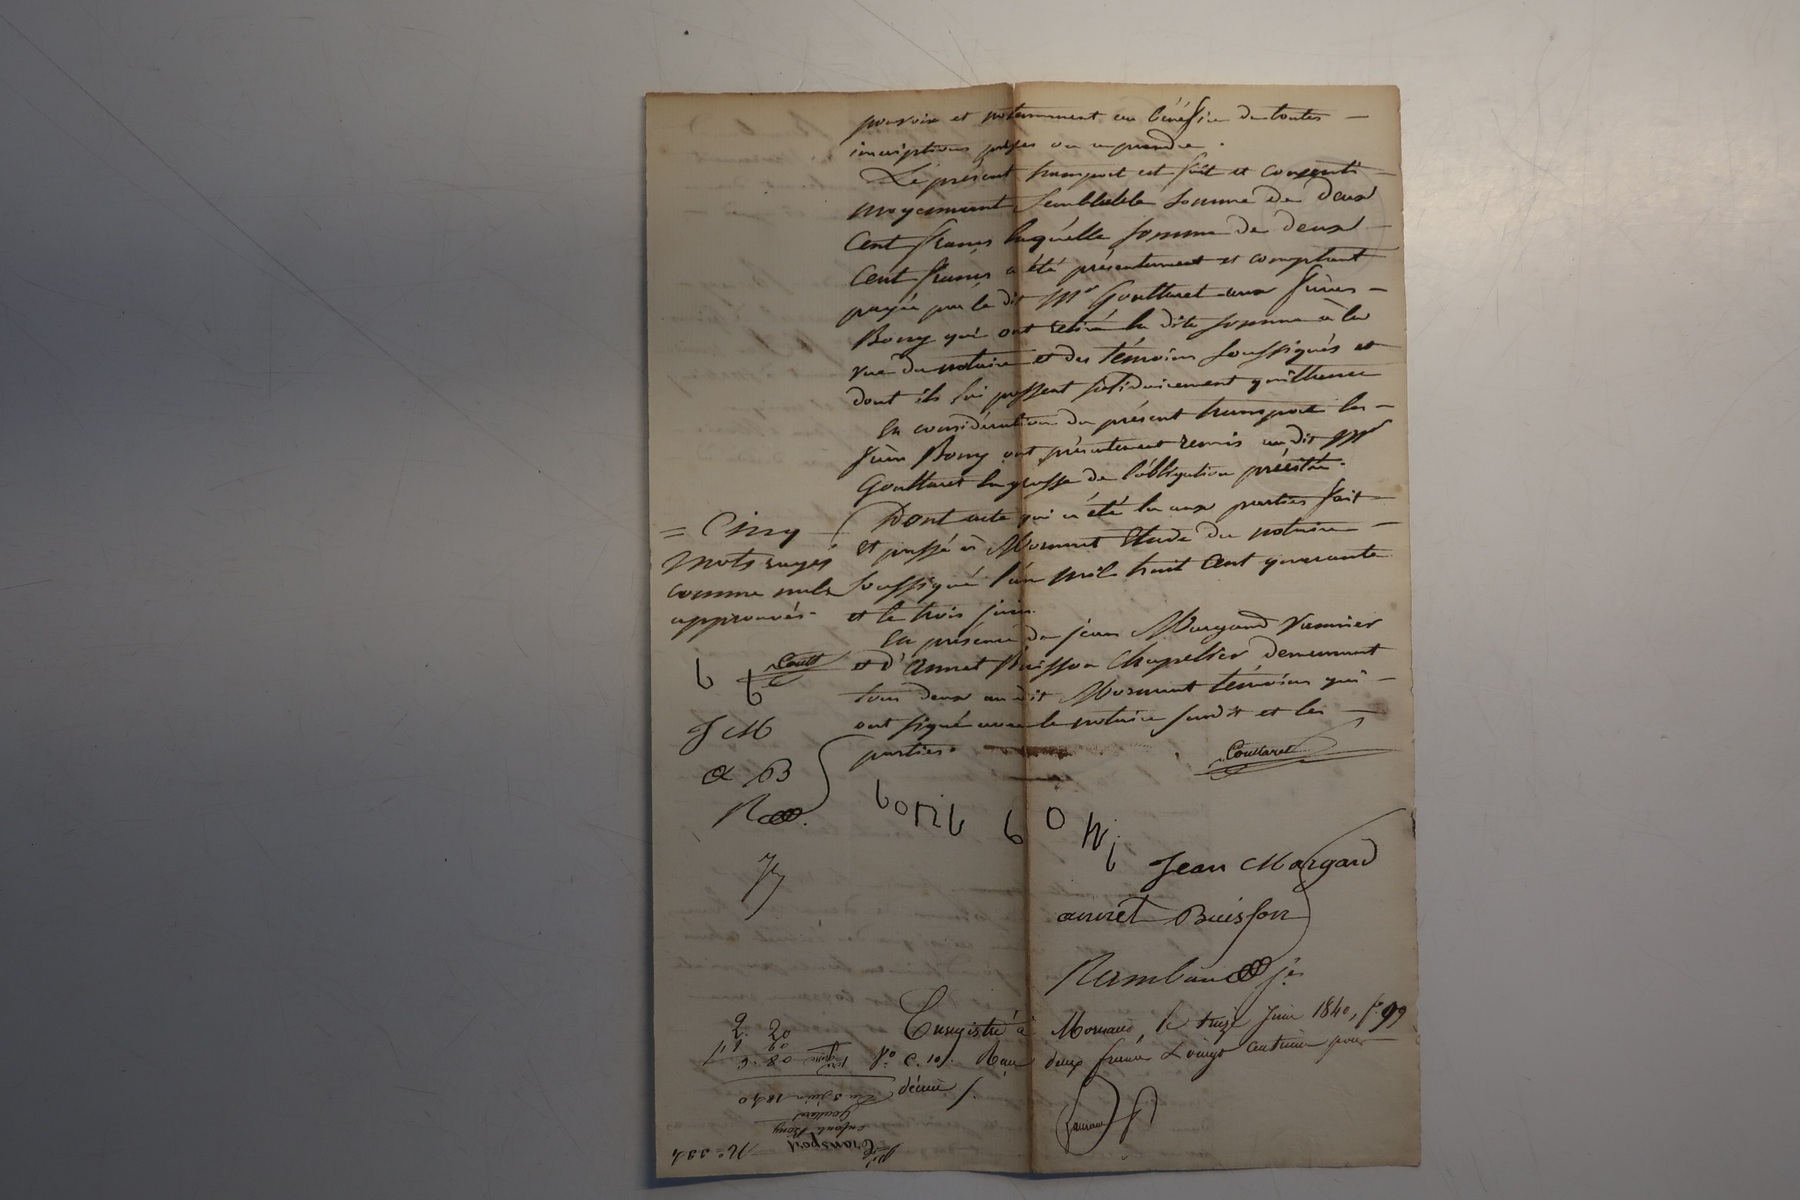 pouvoir et notamment au bénéfice de toutes —
inscriptions prises ou a prendre.
Le présent transport est fait et consenti —
moyennant semblable somme de deux
Cent francs laquelle somme de deux —
Cent francs a été présentement et comptant
payée par le dit Mr Gouttaret aux frères —
Bony qui ont retiré la dite somme à la
vue du notaire et des témoins soussignés et
dont ils lui passent solidairement quittance
En considération du présent transport les —
frères Bony ont présentement remis au dit Mr
Gouttaret la grosse de l'obligation précitée.
Dont acte qui a été lu aux parties fait —
et passé à Mornant Etude du notaire —
soussigné l'an mil huit cent quarante
et le trois juin.
En présence de jean Margand Vannier
et d'annet Buisson Chapellier demeurant
tous deux au dit Mornant témoins qui —
ont signé avec le notaire susdit et les —
parties.
= Cinq
mots rayés
comme nuls
approuvés.
b b Goutt
J M
a B
R
Gouttaret
Jean Margand
annet Buisson
Rambaud je
Enregistré à Mornant, le treize Juin 1840, fo 99
Vo C. 10. Reçu deux francs & vingt centimes pour
décime
2. 20
No 334
Transport
enfants Bony
Gouttaret
Du 3 juin 1840